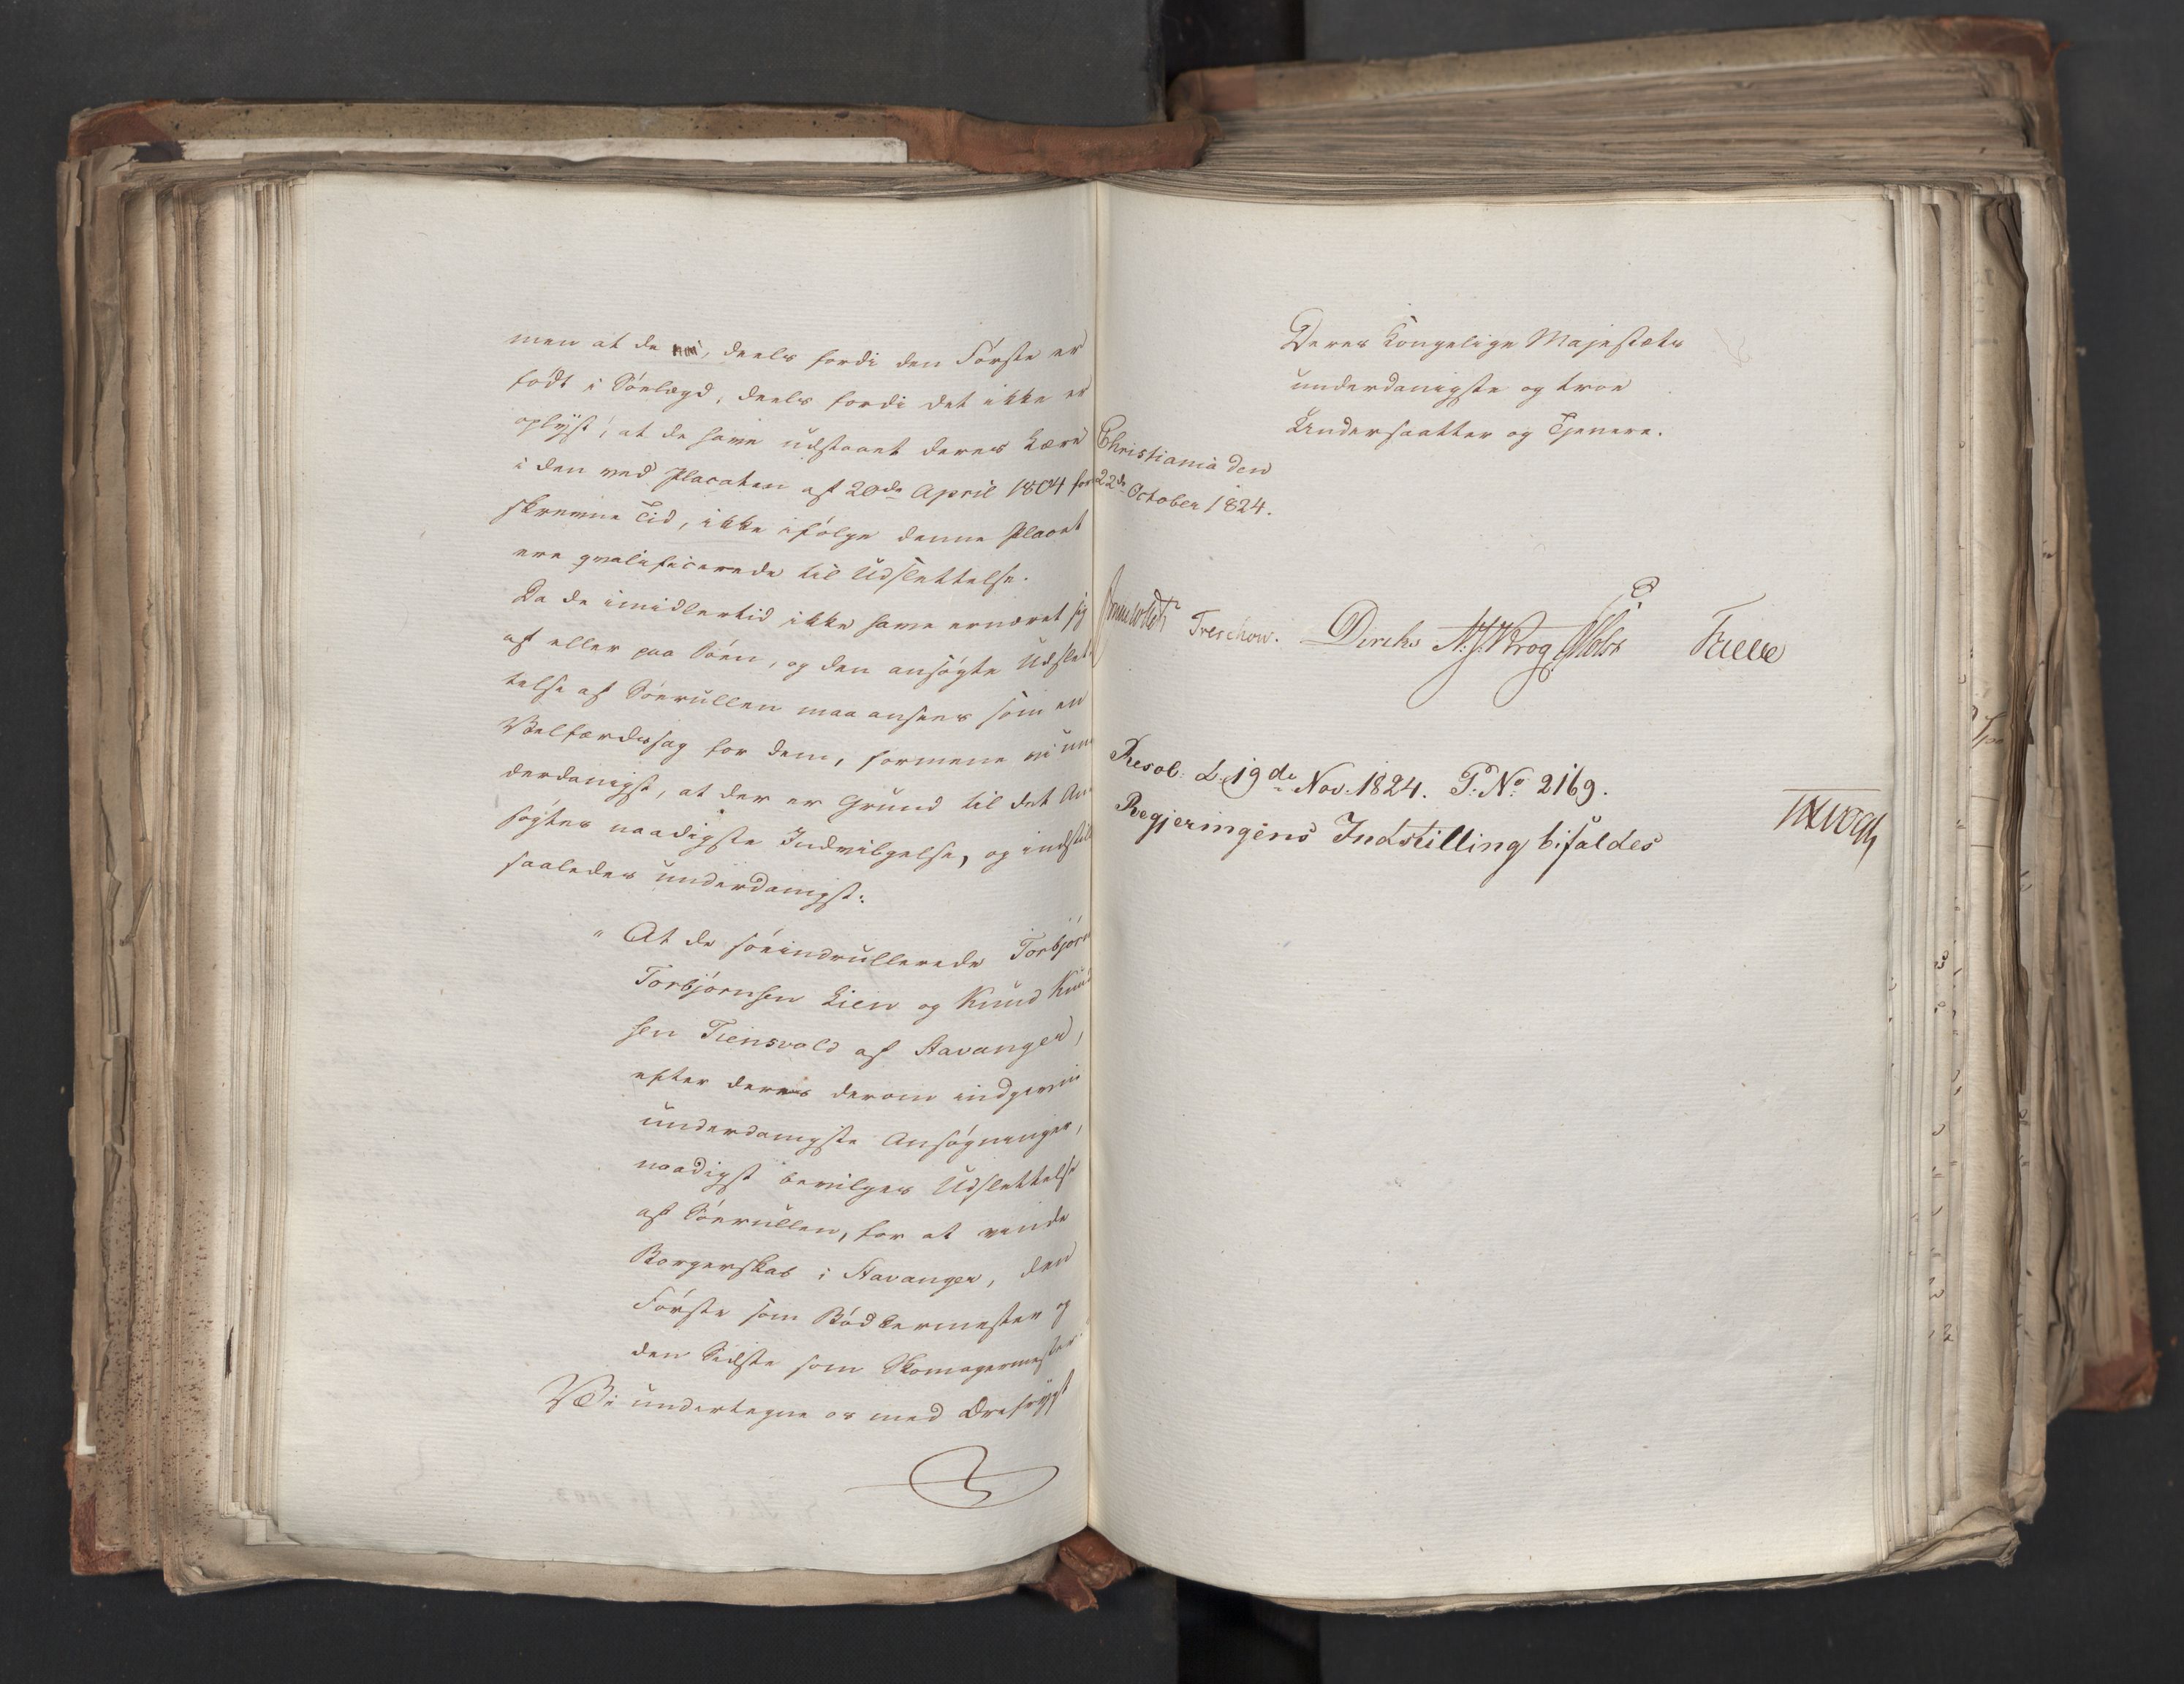 men at de , deels fordi den Første er
født i Søelægd, deels fordi det ikke er
oplyst, at de have udstaaet deres Lære
i den ved Placaten af 20de April 1804 for
skrevne Tid, ikke ifølge denne Placat
ere qvalificerede til Udslettelse.
Da de imidlertid ikke have ernæret sig
af eller paa Søen, og den ansøgte Udslet-
telse af Søerullen maa ansees som en
Velfærdssag for dem, formene vi un-
derdanigst, at der er Grund til det An-
søgtes naadigste Indvilgelse, og indstille
saaledes underdanigst:
" At de søeindrullerede Torbjørn
Torbjørnsen Lien og Knud Knud
sen Tiensvold af Stavanger,
efter deres derom indgivne
underdanigste Ansøgninger,
naadigst bevilges Udslettelse
af Søerullen, for at vinde
Borgerskab i Stavanger, den
Første som Bødkermester og
den Sidste som Skomagermester"
Vi undertegne os med Ærefrygt
Deres Kongelige Majestæts
underdanigste og troe
Undersaatter og Tjenere.
Christiania den
22de October 1824.
Sommerhielm Treschow. Diriks N.J. Krog Holst Fasting
Resol. d. 19de Nov. 1824. P: No 2169.
Regjeringens Indstilling bifaldes